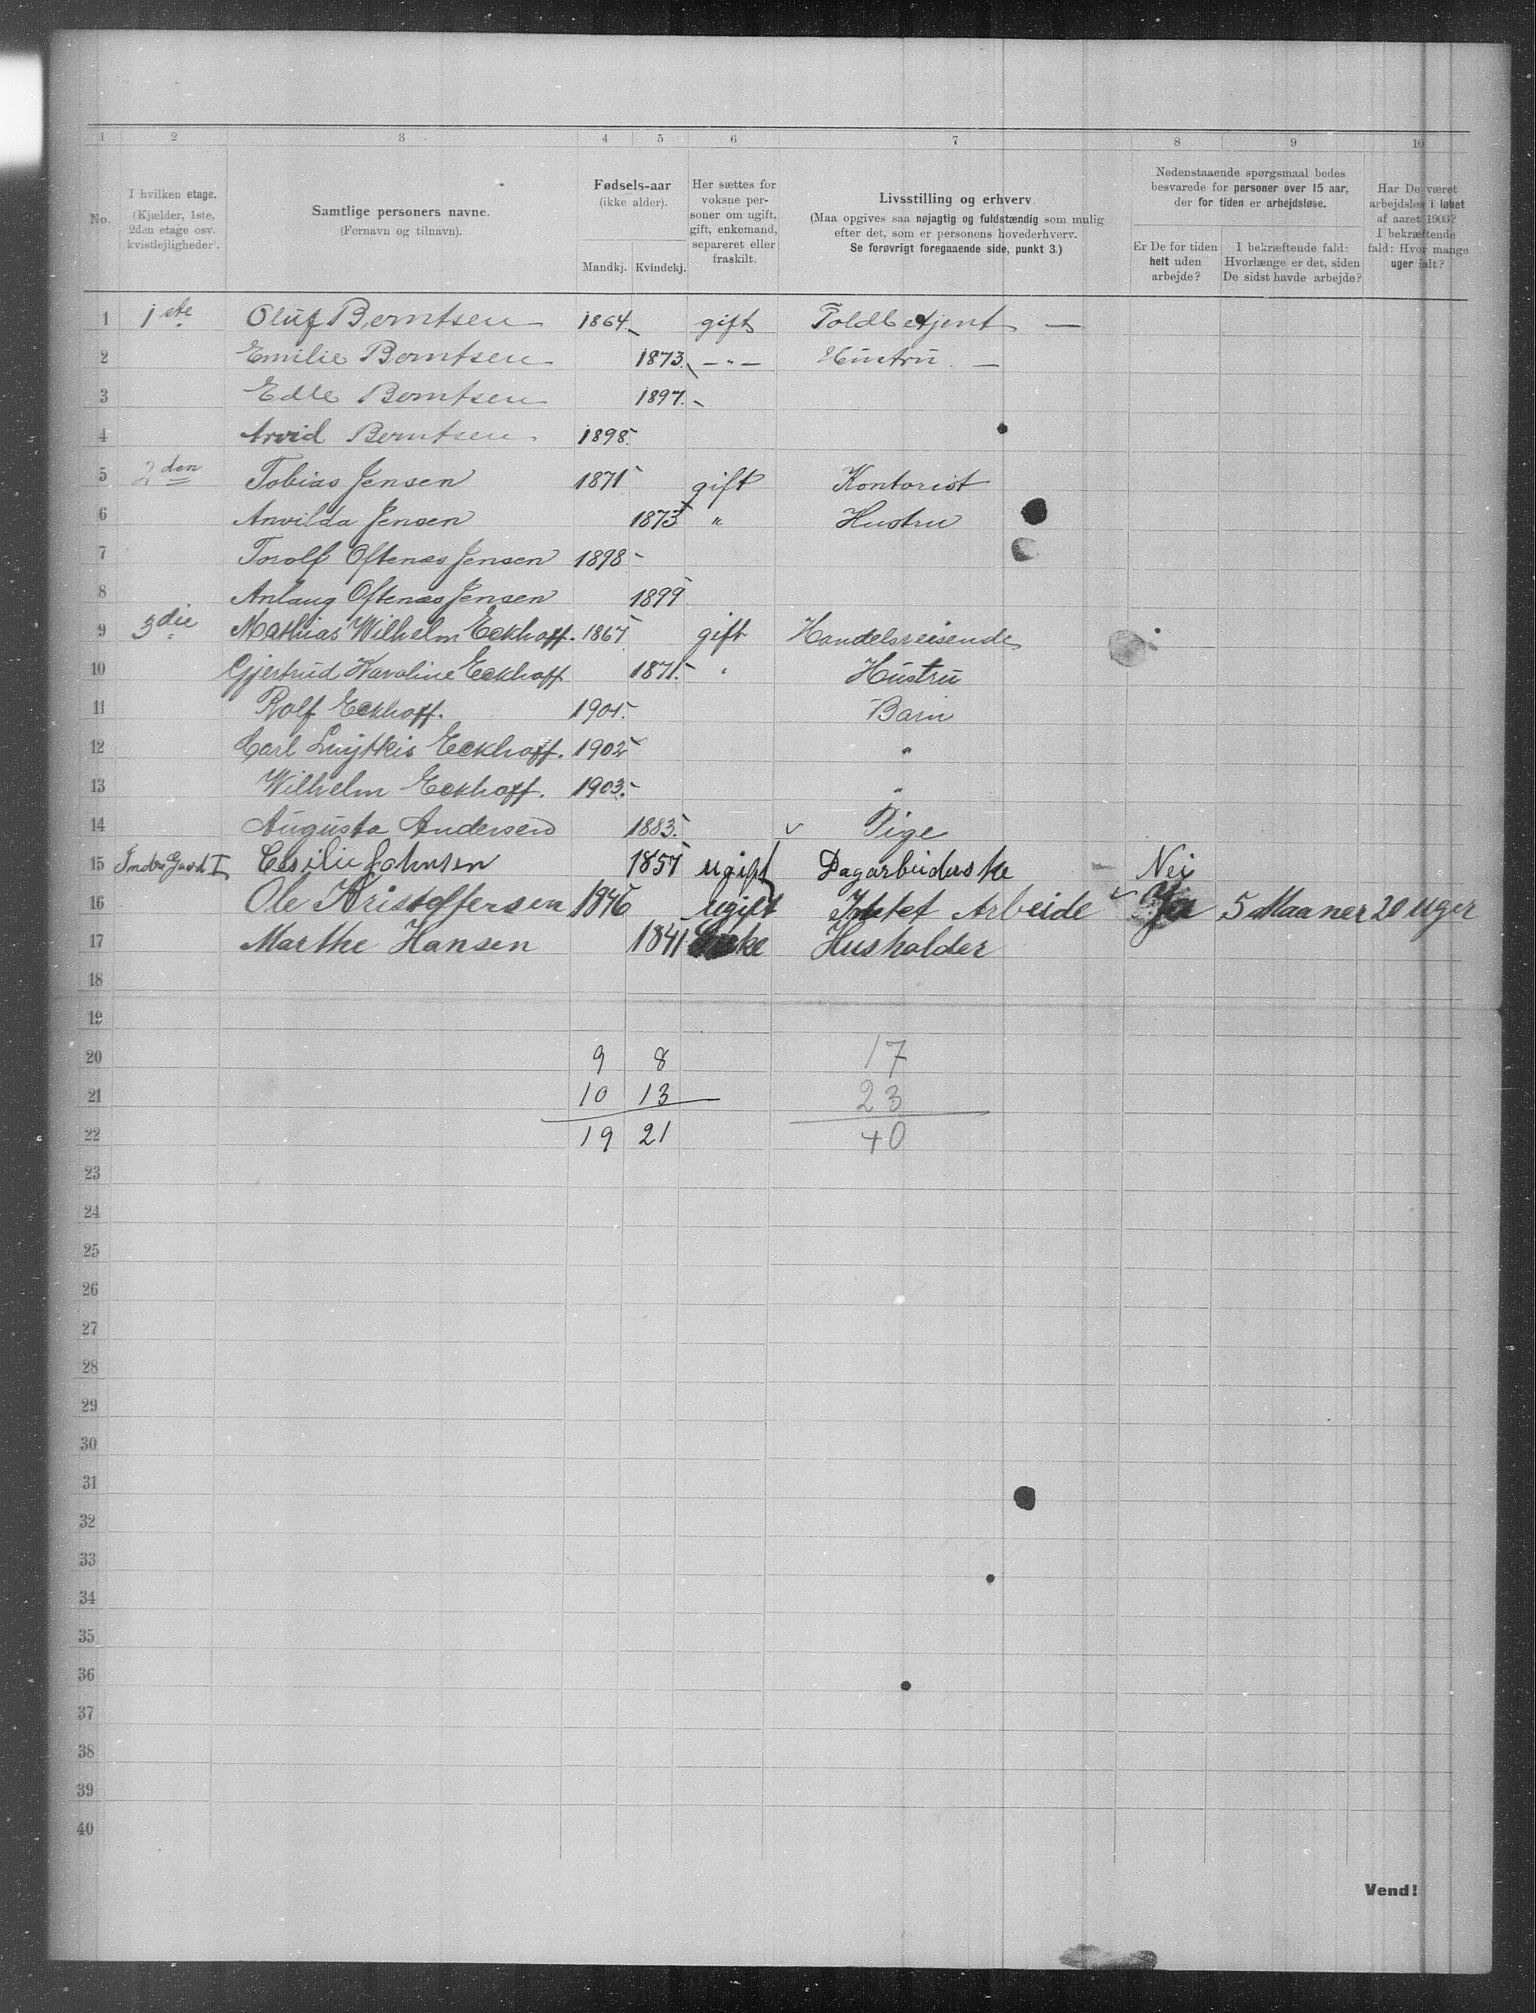 1 2 3 4 5 6 7 8 9 10
No.
I hvilken etage.
(Kjælder, 1ste,
2den etage osv.
kvistlejligheder).
Samtlige personers navne.
(Fornavn og tilnavn).
Fødsels-aar
(ikke alder).
Mandkj. Kvindekj.
Her sættes for
voksne per-
soner om ugift,
gift, enkemand,
separeret eller
fraskilt.
Livsstilling og erhverv.
(Maa opgives saa nøjagtig og fuldstændig som mulig
efter det, som er personens hovederhverv.
Se forøvrigt foregaaende side, punkt 3.)
Nedenstaaende spørgsmaal bedes
besvarede for personer over 15 aar,
der for tiden er arbejdsløse.
Er De for tiden
helt uden
arbejde?
I bekræftende fald:
Hvorlænge er det, siden
De sidst havde arbejde?
Har De været
arbejdsløs i løbet
af aaret 1903?
I bekræftende
fald: Hvor mange
uger ialt?
1 1ste Oluf Berntsen 1864 gift Toldbetjent —
2 Emilie Berntsen 1873. —"— Hustru —
3 Edle Berntsen 1897.
4 Arvid Berntsen 1898.
5 2den Tobias Jensen 1871 gift Kontorist
6 Anvilda Jensen 1873 " Hustru
7 Torolf Oftenæs Jensen 1898
8 Anlaug Oftenæs Jensen 1899
9 3die Mathias Wilhelm Eckhoff. 1867 gift Handelsreisende
10 Gjertrud Karoline Eckhoff 1871. " Hustru
11 Rolf Eckhoff. 1901. Barn
12 Carl Eckhoff. 1902 "
13 Wilhelm Eckhoff. 1903. "
14 Augusta Andersen 1883. Pige
15 Indre Gaard I Cesilie Johnsen 1857 ugift Dagarbeiderske Nei
16 Ole Kristoffersen 1846 Ugift Intet Arbeide Ja 5 Maaner 20 uger
17 Marthe Hansen 1841 Enke Husholder
18
19
20 9 8 17
21 10 13 23
22 19 21 40
23
24
25
26
27
28
29
30
31
32
33
34
35
36
37
38
39
40
Vend!